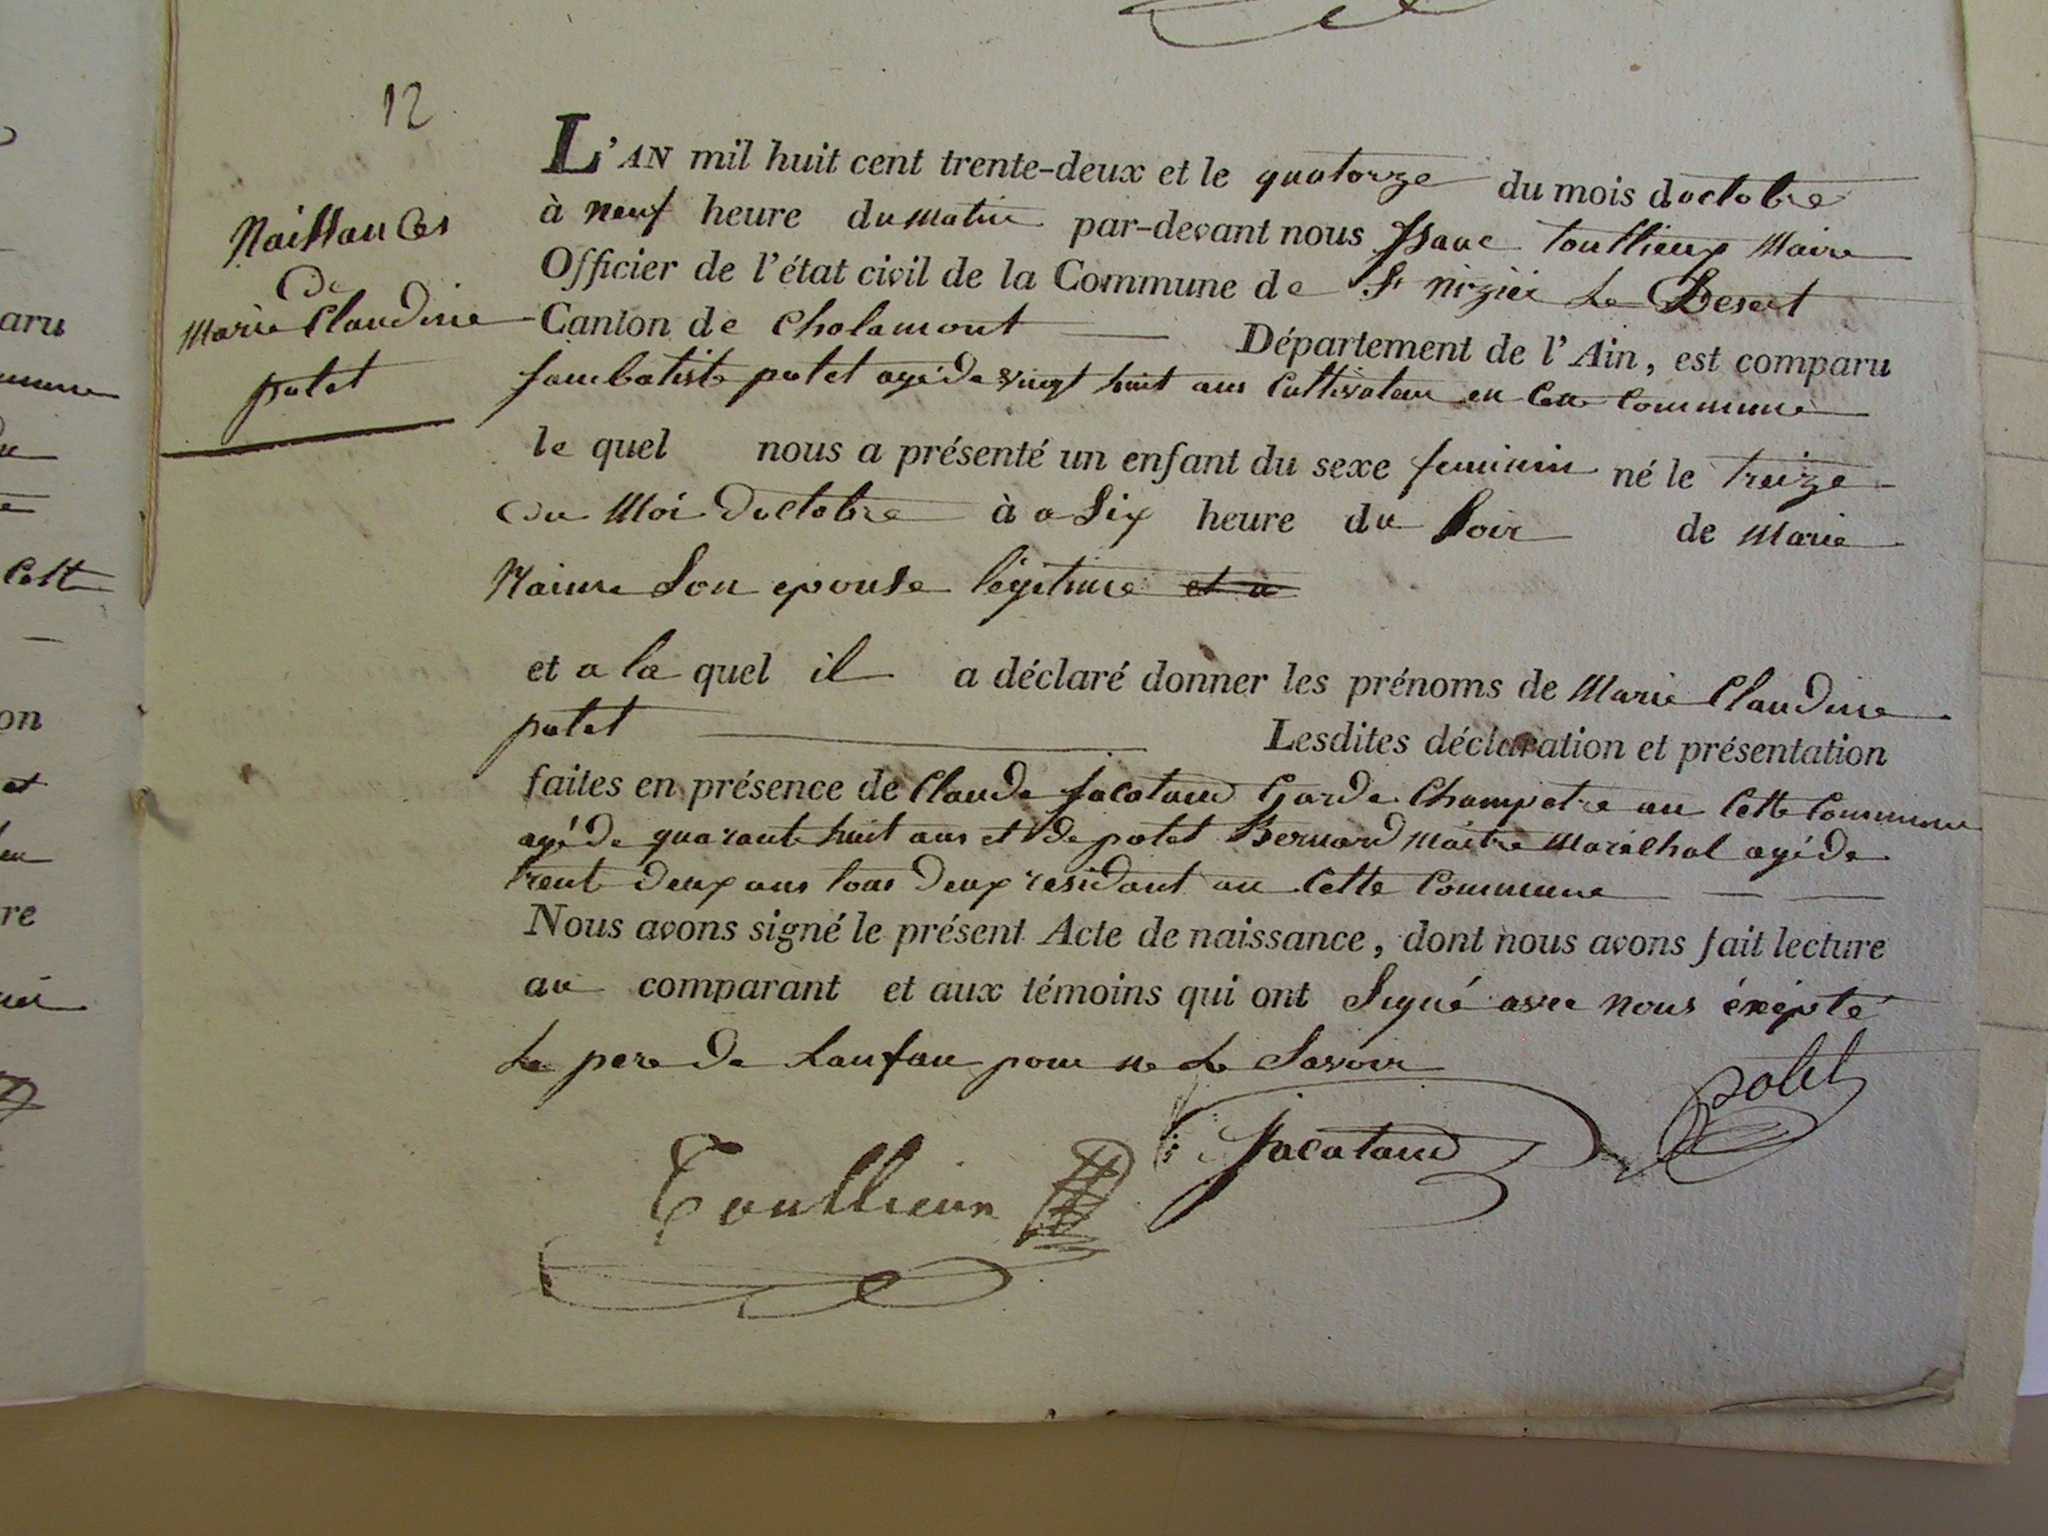 12
Naissances
De
Marie Claudine
potet
L'AN mil huit cent trente-deux et le quatorze du mois doctobre
à neuf heure du matin par-devant nous Isaac Toullieux Maire
Officier de l'état civil de la Commune de St nizier Le Desert
Canton de Chalamont Département de l'Ain, est comparu
potet agé de vingt huit ans Cultivateur en Commune
le quel nous a présenté un enfant du sexe feminin né le treize
Du Moi Doctobre à a Six heure du Soir de Marie
Son epouse légitime
et a la quel il a déclaré donner les prénoms de Marie Claudine
potet Lesdites déclaration et présentation
faites en présence de Claude Jacotaud Garde Champetre au Cette Commune
agé de quarante huit ans et de potet Bernard Maitre Maréchal agé de
trente deux ans tous deux residant au Cette Commune
Nous avons signé le présent Acte de naissance, dont nous avons fait lecture
au comparant et aux témoins qui ont Signé avec nous
Le pere de Lanfan pour ne Le Savoir
potet
Jacotaud
Toullieux
aru
Cett
on
et
re